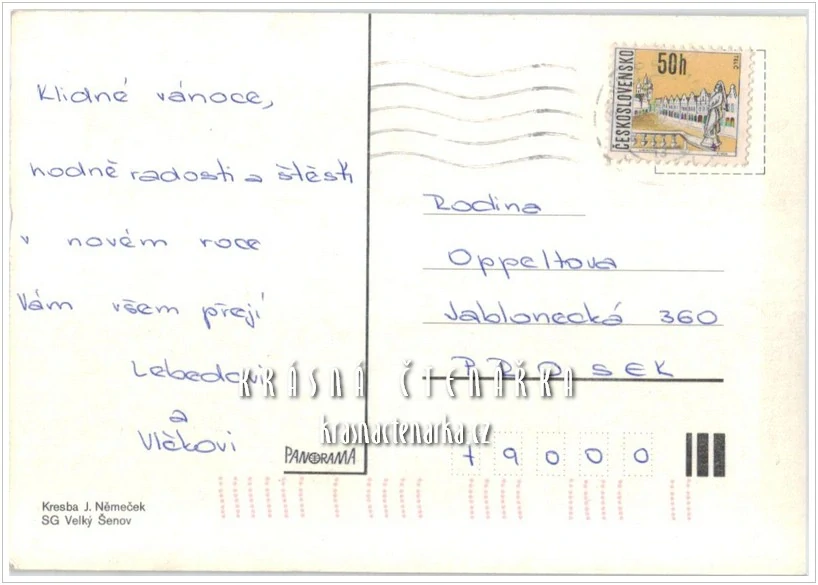 Klidné vánoce,
hodně radosti a štěstí
v novém roce
Vám všem přejí
Lebedovi
a
Vlčkovi
PANORAMA
Kresba J. Němeček
SG Velký Šenov
ČESKOSLOVENSKO
50h
TELČ
Rodina
Oppeltova
Jablonecká 360
PROSEK
KRÁSNÁ ČTENÁŘKA
krasnactenarka.cz
19000